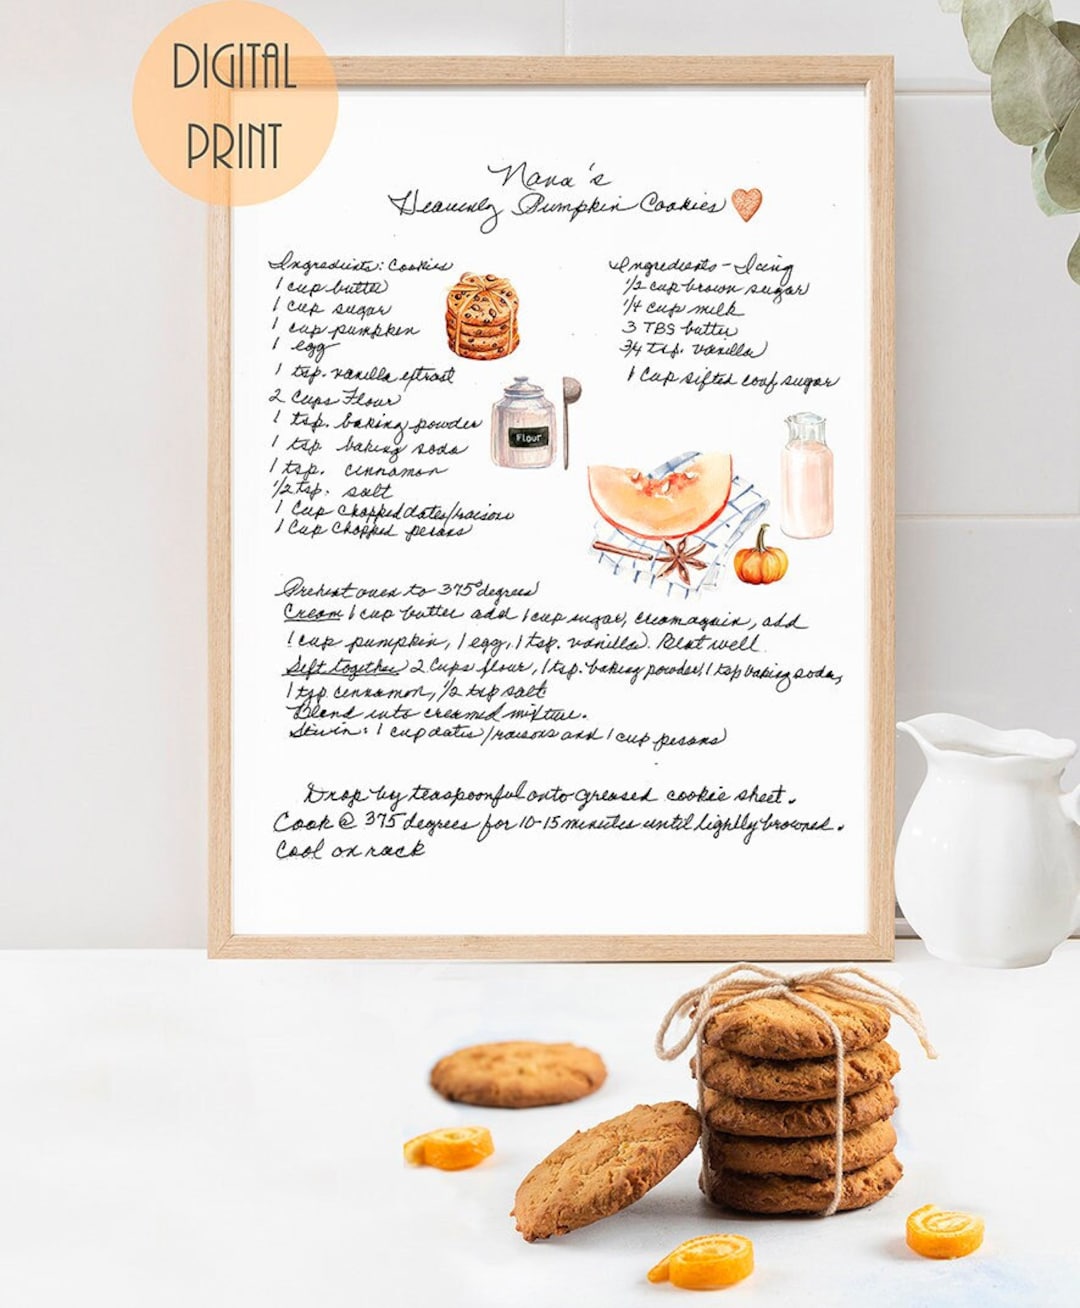 DIGITAL
PRINT
Nana's
Heavenly Pumpkin Cookies
Ingredients: Cookies
1 cup butter
1 cup sugar
1 cup pumpkin
1 egg
1 tsp. vanilla extract
2 Cups Flour
1 tsp. baking powder
1 tsp baking soda
1 tsp. cinnamon
1/2 tsp. salt
1 Cup Chopped dates/raisons
1 Cup Chopped pecans
Ingredients - Icing
1/2 cup brown sugar
1/4 cup milk
3 TBS butter
3/4 tsp. vanilla
1 Cup sifted conf sugar
Flour
Preheat oven to 375° degrees
Cream 1 cup butter add 1 cup sugar, cream again, add
1 cup pumpkin, 1 egg, 1 tsp. vanilla. Beat well.
Sift together 2 Cups flour, 1 tsp. baking powder, 1 tsp baking soda,
1 tsp cinnamon, 1/2 tsp salt
Blend into creamed mixture.
Stir in: 1 cup dates/raisons and 1 cup pecans
Drop by teaspoonful onto greased cookie sheet.
Cook @ 375 degrees for 10-15 minutes until lightly browned.
Cool on rack